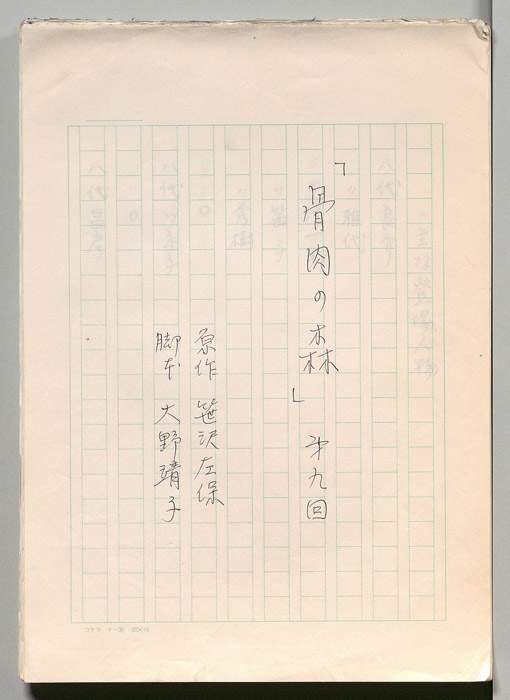 「骨肉の森」 第九回
原作 笹沢左保
脚本 大野靖子